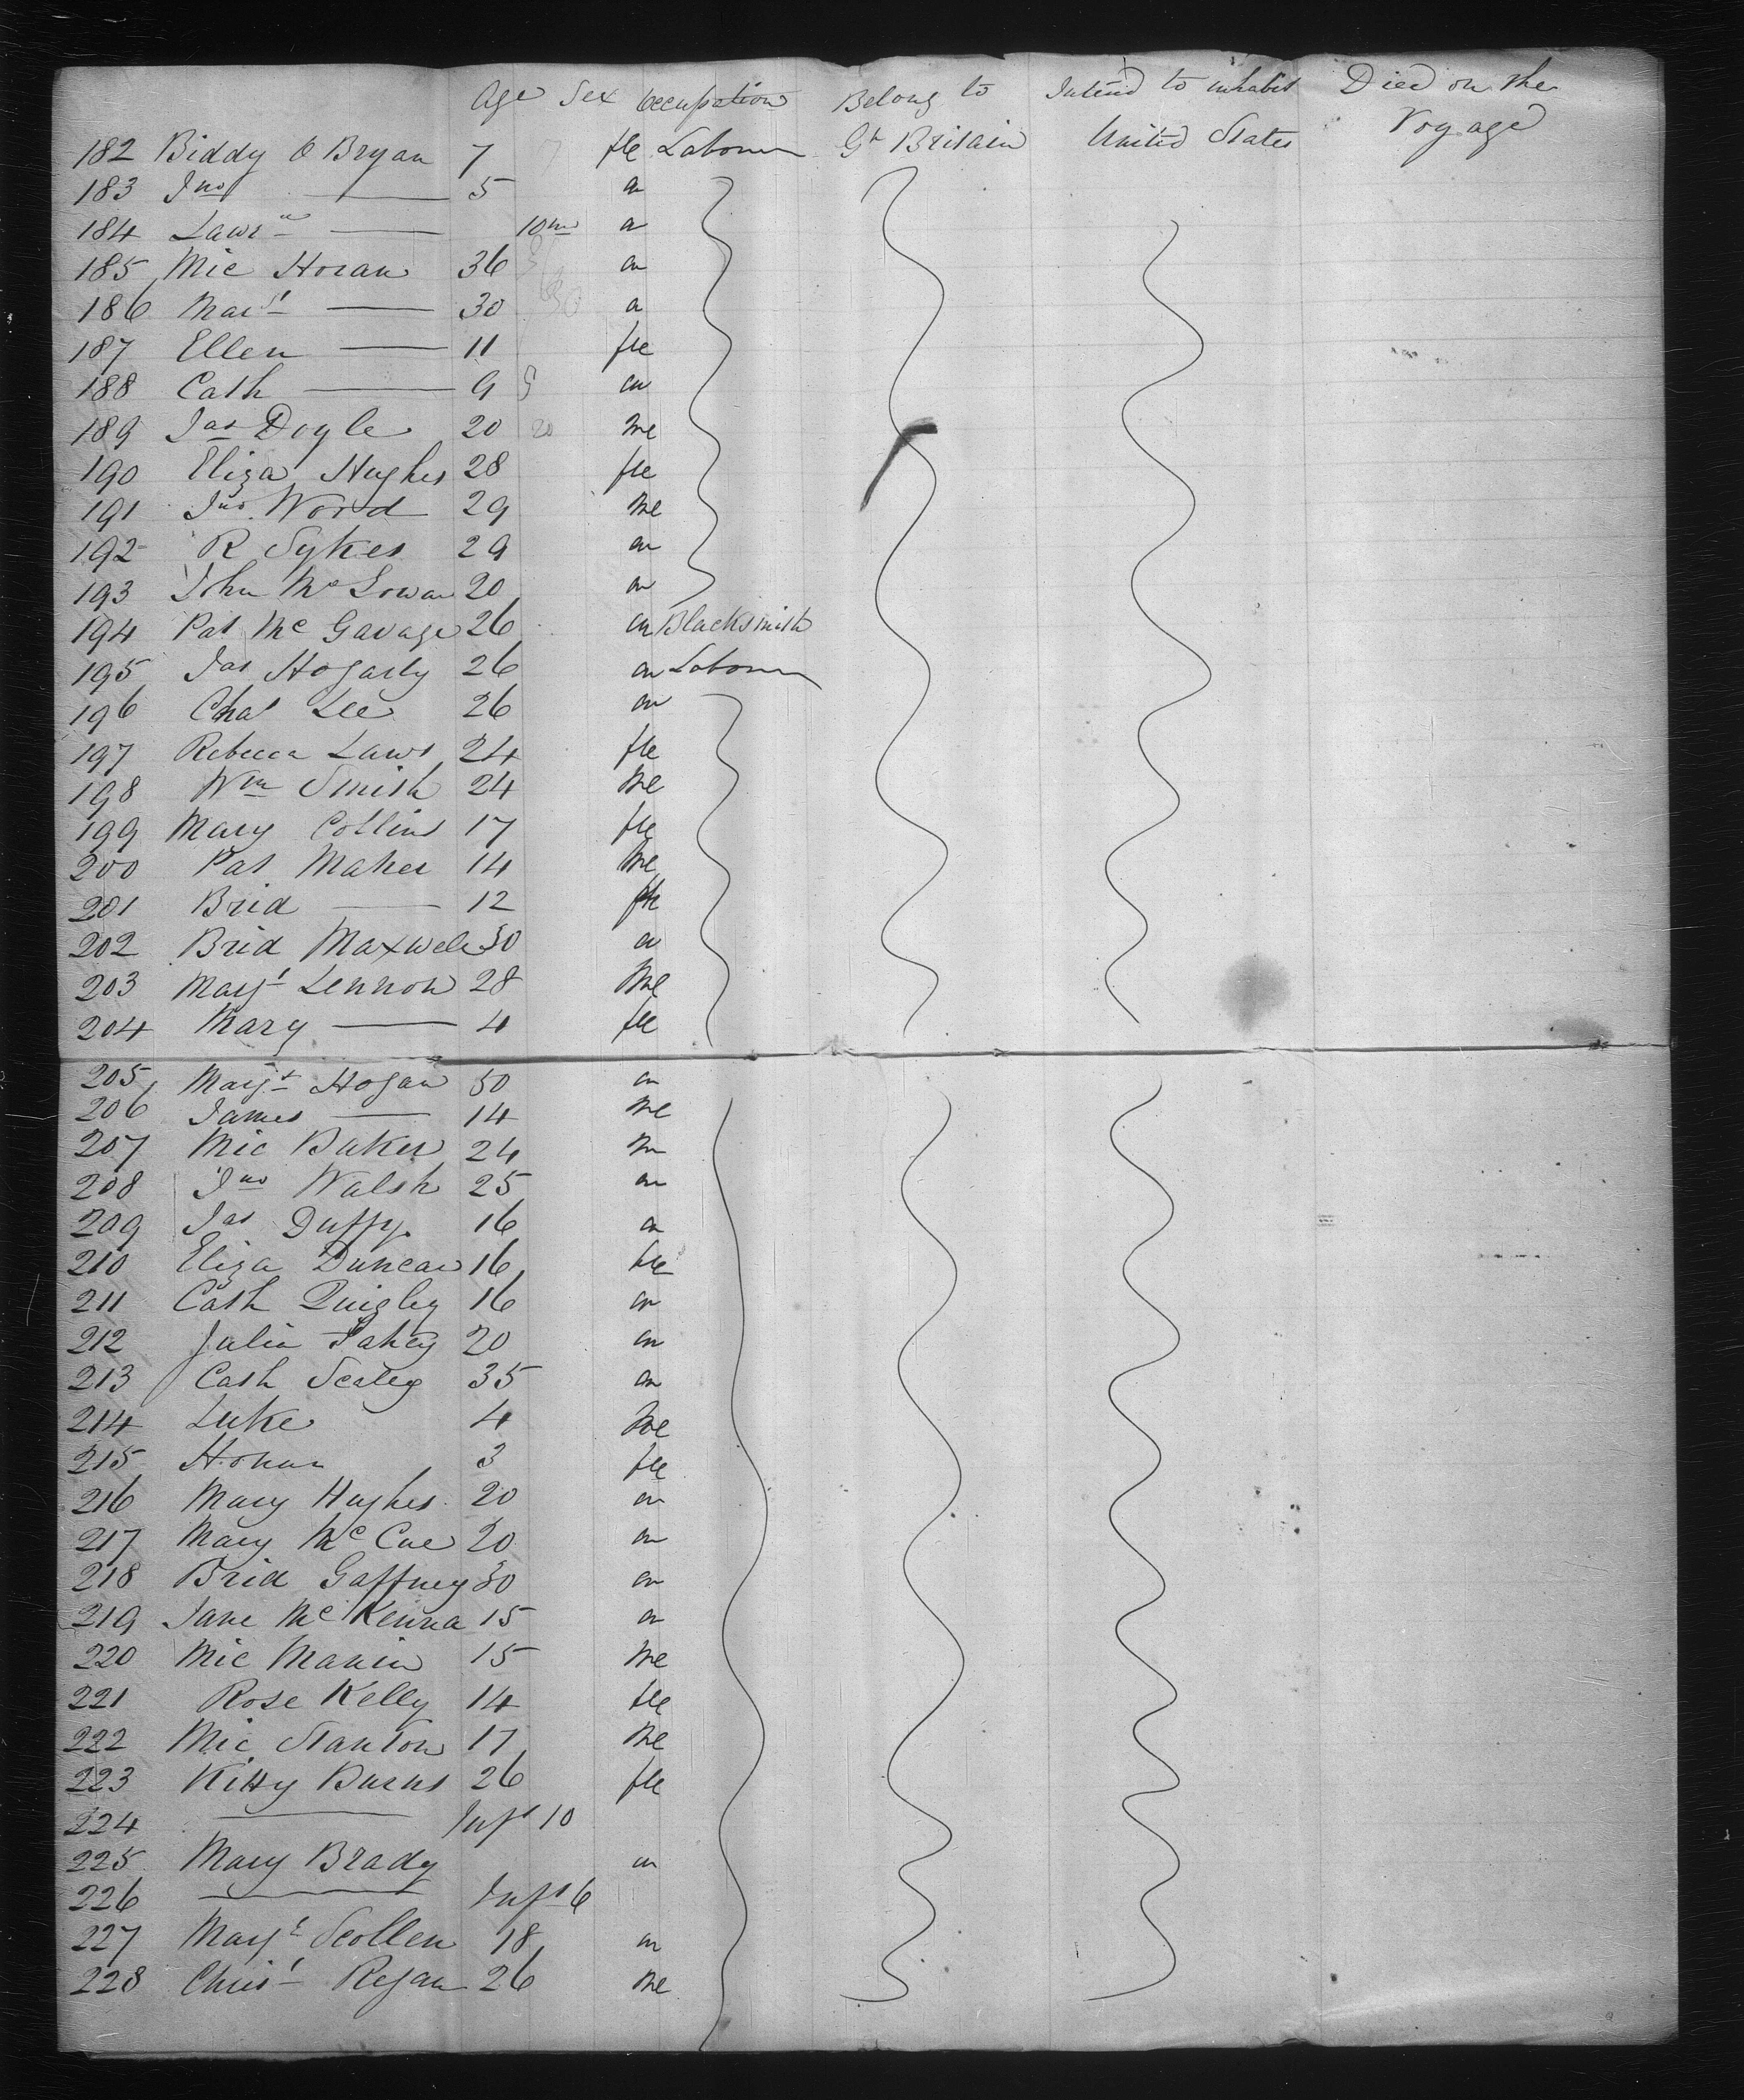 Age Sex Occupation Belong to Intend to inhabit Died on the
Gt Britain United States Voyage
182 Biddy O Bryan 7 fle Labourer
183 Jno —— 5 "
184 Lawr —— 10 m "
185 Mic Horan 36 "
186 Mart —— 30 "
187 Ellen —— 11 fle
188 Cath —— 9 "
189 Jas Doyle 20 Me
190 Eliza Hughes 28 fle
191 Jno Word 29 Me
192 R Sykes 29 "
193 John Mc Gowan 20 "
194 Pat Mc Gavage 26 " Blacksmith
195 Jas Hogarty 26 " Labourer
196 Chas Lee 26 "
197 Rebecca Laws 24 fle
198 Wm Smith 24 Me
199 Mary Collins 17 fle
200 Pat Maher 14 Me
201 Brid —— 12 fle
202 Brid Maxwell 30 "
203 Margt Lennon 28 Me
204 Mary —— 4 fle
205 Margt Hogan 50 "
206 James —— 14 Me
207 Mic Baker 24 "
208 Jno Walsh 25 "
209 Jas Duffy 16 "
210 Eliza Duncan 16 fle
211 Cath Quigley 16 "
212 Julia Fahey 20 "
213 Cath Scaley 35 "
214 Luke 4 Me
215 Honan 3 fle
216 Mary Hughes 20 "
217 Mary Mc Cue 20 "
218 Brid Gaffney 30 "
219 Jane Mc Kenna 15 "
220 Mic Manin 15 Me
221 Rose Kelly 14 fle
222 Mic Stanton 17 Me
223 Kitty Burns 26 fle
224 —— Inft 10
225 Mary Brady "
226 —— Inft 6
227 Margt Scollen 18 "
228 Christ Regan 26 Me